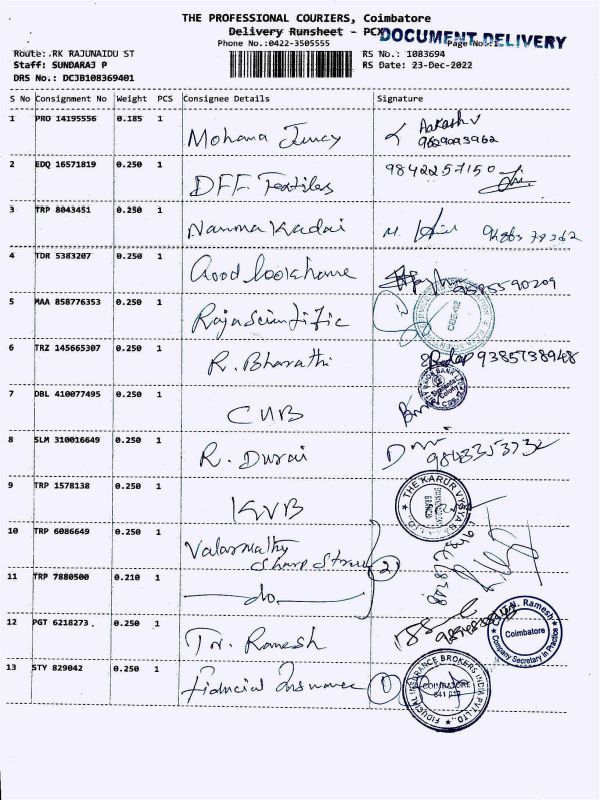 THE PROFESSIONAL COURIERS, Coimbatore
Delivery Runsheet - PCX
DOCUMENT DELIVERY
Phone No.:0422-3505555
Page No.:1
Route: RK RAJUNAIDU ST
RS No.: 1083694
Staff: SUNDARAJ P
RS Date: 23-Dec-2022
DRS No.: DCJB108369401
S No Consignment No Weight PCS Consignee Details Signature
1 PRO 14195556 0.185 1 Mohana Aakash.V
9629093962
2 EDQ 16571819 0.250 1 DFF Textiles 9842257150
3 TRP 8043451 0.250 1 Namma Kadai
4 TDR 5383207 0.250 1 Good book home
5 MAA 858776353 0.250 1 Raja Scientific
6 TRZ 145665307 0.250 1 R. Bharathi 9385738948
7 DBL 410077495 0.250 1 CUB
8 SLM 310016649 0.250 1 R. Durai
9843353732
9 TRP 1578138 0.250 1 KVB
THE KARUR VYSYA
10 TRP 6086649 0.250 1 Valarmathy
Sharp 2
11 TRP 7880500 0.210 1 do
12 PGT 6218273 0.250 1 Tvr. Ramesh
Ramesh
Coimbatore
Company Secretary in Practice
13 STY 829042 0.250 1 Fiducial Insurance 1
FIDUCIAL INSURANCE BROKERS INDIA PVT. LTD.
COIMBATORE
641 012